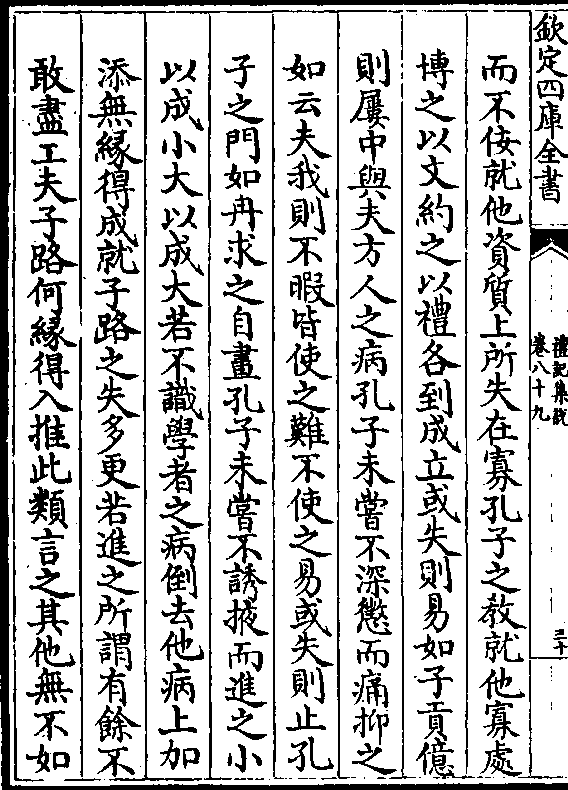 欽定四庫全書
禮記集說
卷八十九
三十
而不佞就他資質上所失在寡孔子之教就他寡處
博之以文約之以禮各到成立或失則易如子貢億
則屢中與夫方人之病孔子未嘗不深懲而痛抑之
如云夫我則不暇皆使之難不使之易或失則止孔
子之門如冉求之自畫孔子未嘗不誘掖而進之小
以成小大以成大若不識學者之病倒去他病上加
添無緣得成就子路之失多更若進之所謂有餘不
敢盡工夫子路何緣得入推此類言之其他無不如